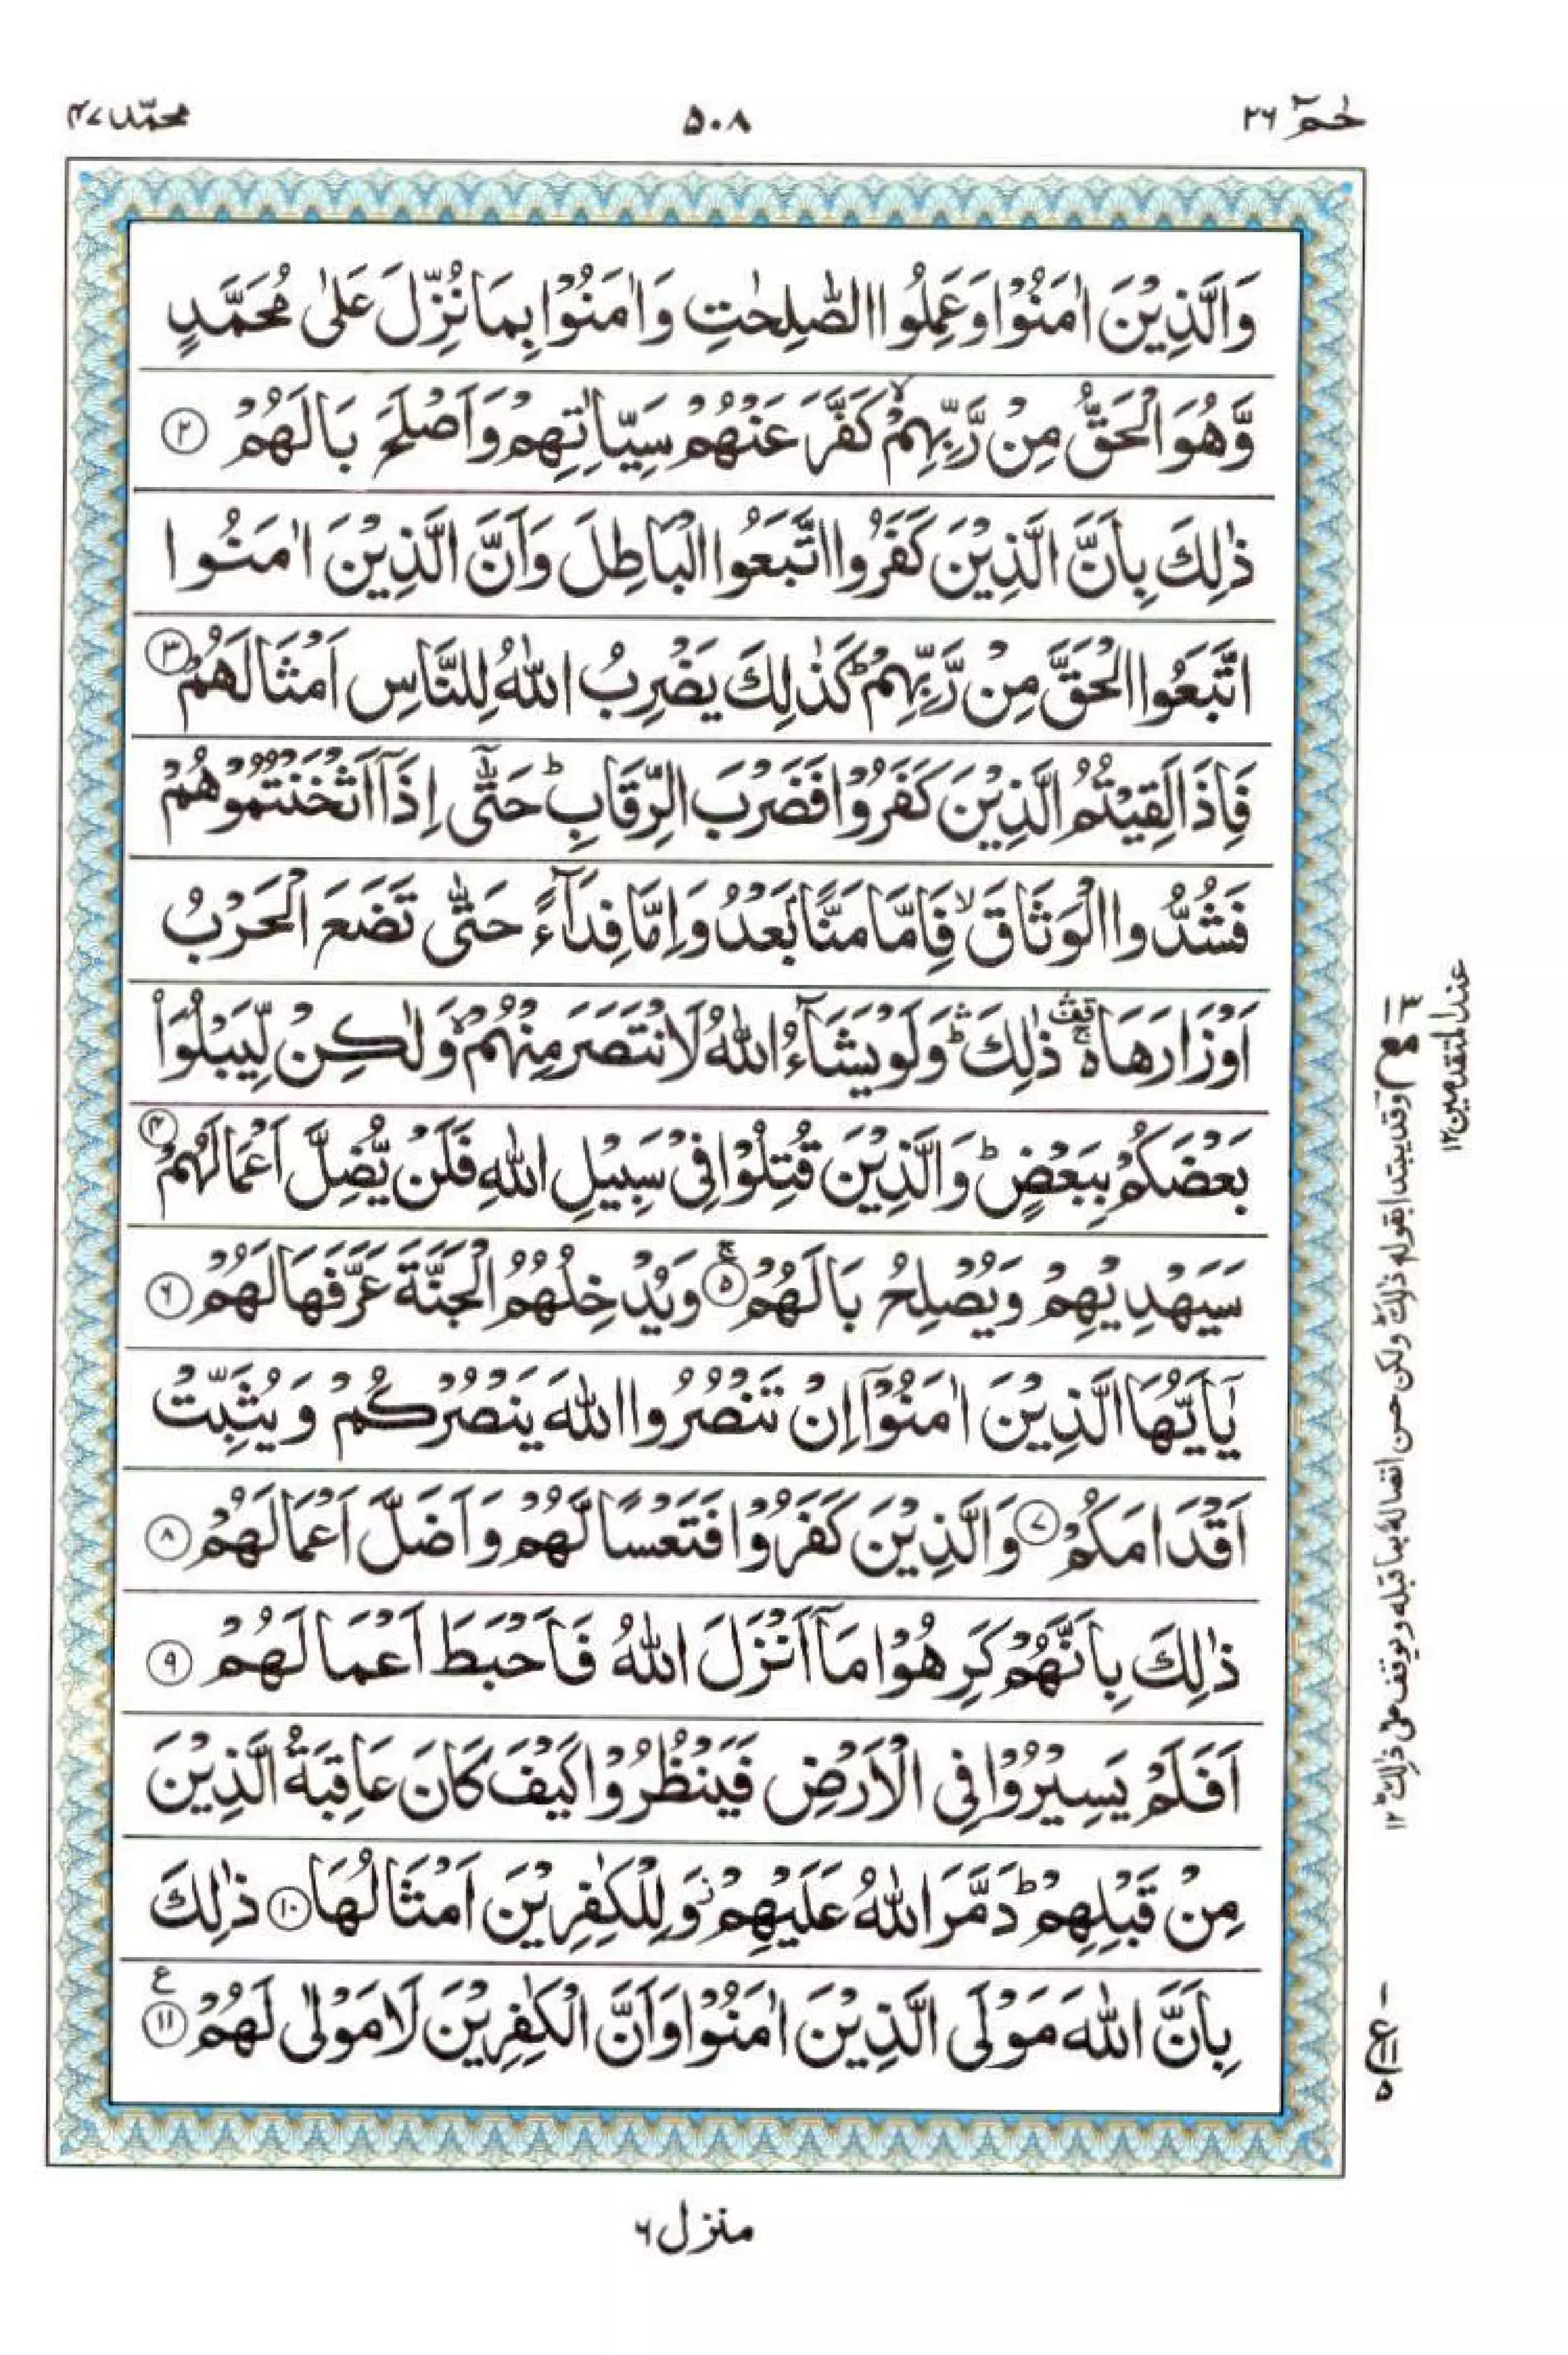 حٰمٓ ٢٦
٥٠٨
محمّد ٤٧
وَالَّذِيۡنَ اٰمَنُوۡا وَعَمِلُوا الصّٰلِحٰتِ وَاٰمَنُوۡا بِمَا نُزِّلَ عَلٰى مُحَمَّدٍ
وَّهُوَ الۡحَقُّ مِنۡ رَّبِّهِمۡۙ كَفَّرَ عَنۡهُمۡ سَيِّاٰتِهِمۡ وَاَصۡلَحَ بَالَهُمۡ ②
ذٰلِكَ بِاَنَّ الَّذِيۡنَ كَفَرُوا اتَّبَعُوا الۡبَاطِلَ وَاَنَّ الَّذِيۡنَ اٰمَنُوا
اتَّبَعُوا الۡحَقَّ مِنۡ رَّبِّهِمۡؕ كَذٰلِكَ يَضۡرِبُ اللّٰهُ لِلنَّاسِ اَمۡثَالَهُمۡ ③
فَاِذَا لَقِيۡتُمُ الَّذِيۡنَ كَفَرُوۡا فَضَرۡبَ الرِّقَابِؕ حَتّٰٓى اِذَاۤ اَثۡخَنۡتُمُوۡهُمۡ
فَشُدُّوا الۡوَثَاقَۙ فَاِمَّا مَنًّۢا بَعۡدُ وَاِمَّا فِدَآءً حَتّٰى تَضَعَ الۡحَرۡبُ
اَوۡزَارَهَاۚ۬ ذٰلِكَۛؕ وَلَوۡ يَشَآءُ اللّٰهُ لَانۡتَصَرَ مِنۡهُمۡۙ وَلٰكِنۡ لِّيَبۡلُوَا۟
بَعۡضَكُمۡ بِبَعۡضٍؕ وَالَّذِيۡنَ قُتِلُوۡا فِىۡ سَبِيۡلِ اللّٰهِ فَلَنۡ يُّضِلَّ اَعۡمَالَهُمۡ ④
سَيَهۡدِيۡهِمۡ وَيُصۡلِحُ بَالَهُمۡۚ ⑤ وَيُدۡخِلُهُمُ الۡجَنَّةَ عَرَّفَهَا لَهُمۡ ⑥
يٰۤاَيُّهَا الَّذِيۡنَ اٰمَنُوۡۤا اِنۡ تَنۡصُرُوا اللّٰهَ يَنۡصُرۡكُمۡ وَيُثَبِّتۡ
اَقۡدَامَكُمۡ ⑦ وَالَّذِيۡنَ كَفَرُوۡا فَتَعۡسًا لَّهُمۡ وَاَضَلَّ اَعۡمَالَهُمۡ ⑧
ذٰلِكَ بِاَنَّهُمۡ كَرِهُوۡا مَاۤ اَنۡزَلَ اللّٰهُ فَاَحۡبَطَ اَعۡمَالَهُمۡ ⑨
اَفَلَمۡ يَسِيۡرُوۡا فِى الۡاَرۡضِ فَيَنۡظُرُوۡا كَيۡفَ كَانَ عَاقِبَةُ الَّذِيۡنَ
مِنۡ قَبۡلِهِمۡؕ دَمَّرَ اللّٰهُ عَلَيۡهِمۡ وَلِلۡكٰفِرِيۡنَ اَمۡثَالُهَا ⑩ ذٰلِكَ
بِاَنَّ اللّٰهَ مَوۡلَى الَّذِيۡنَ اٰمَنُوۡا وَاَنَّ الۡكٰفِرِيۡنَ لَا مَوۡلٰى لَهُمۡ ⑪ ع
وقد يبتدأ بقوله ذلك ولكن حسن اتصاله بما قبله ويوقف على ذلك ١٢
عند المتقدمين ١٢
ع ١١ ٥
منزل ٦